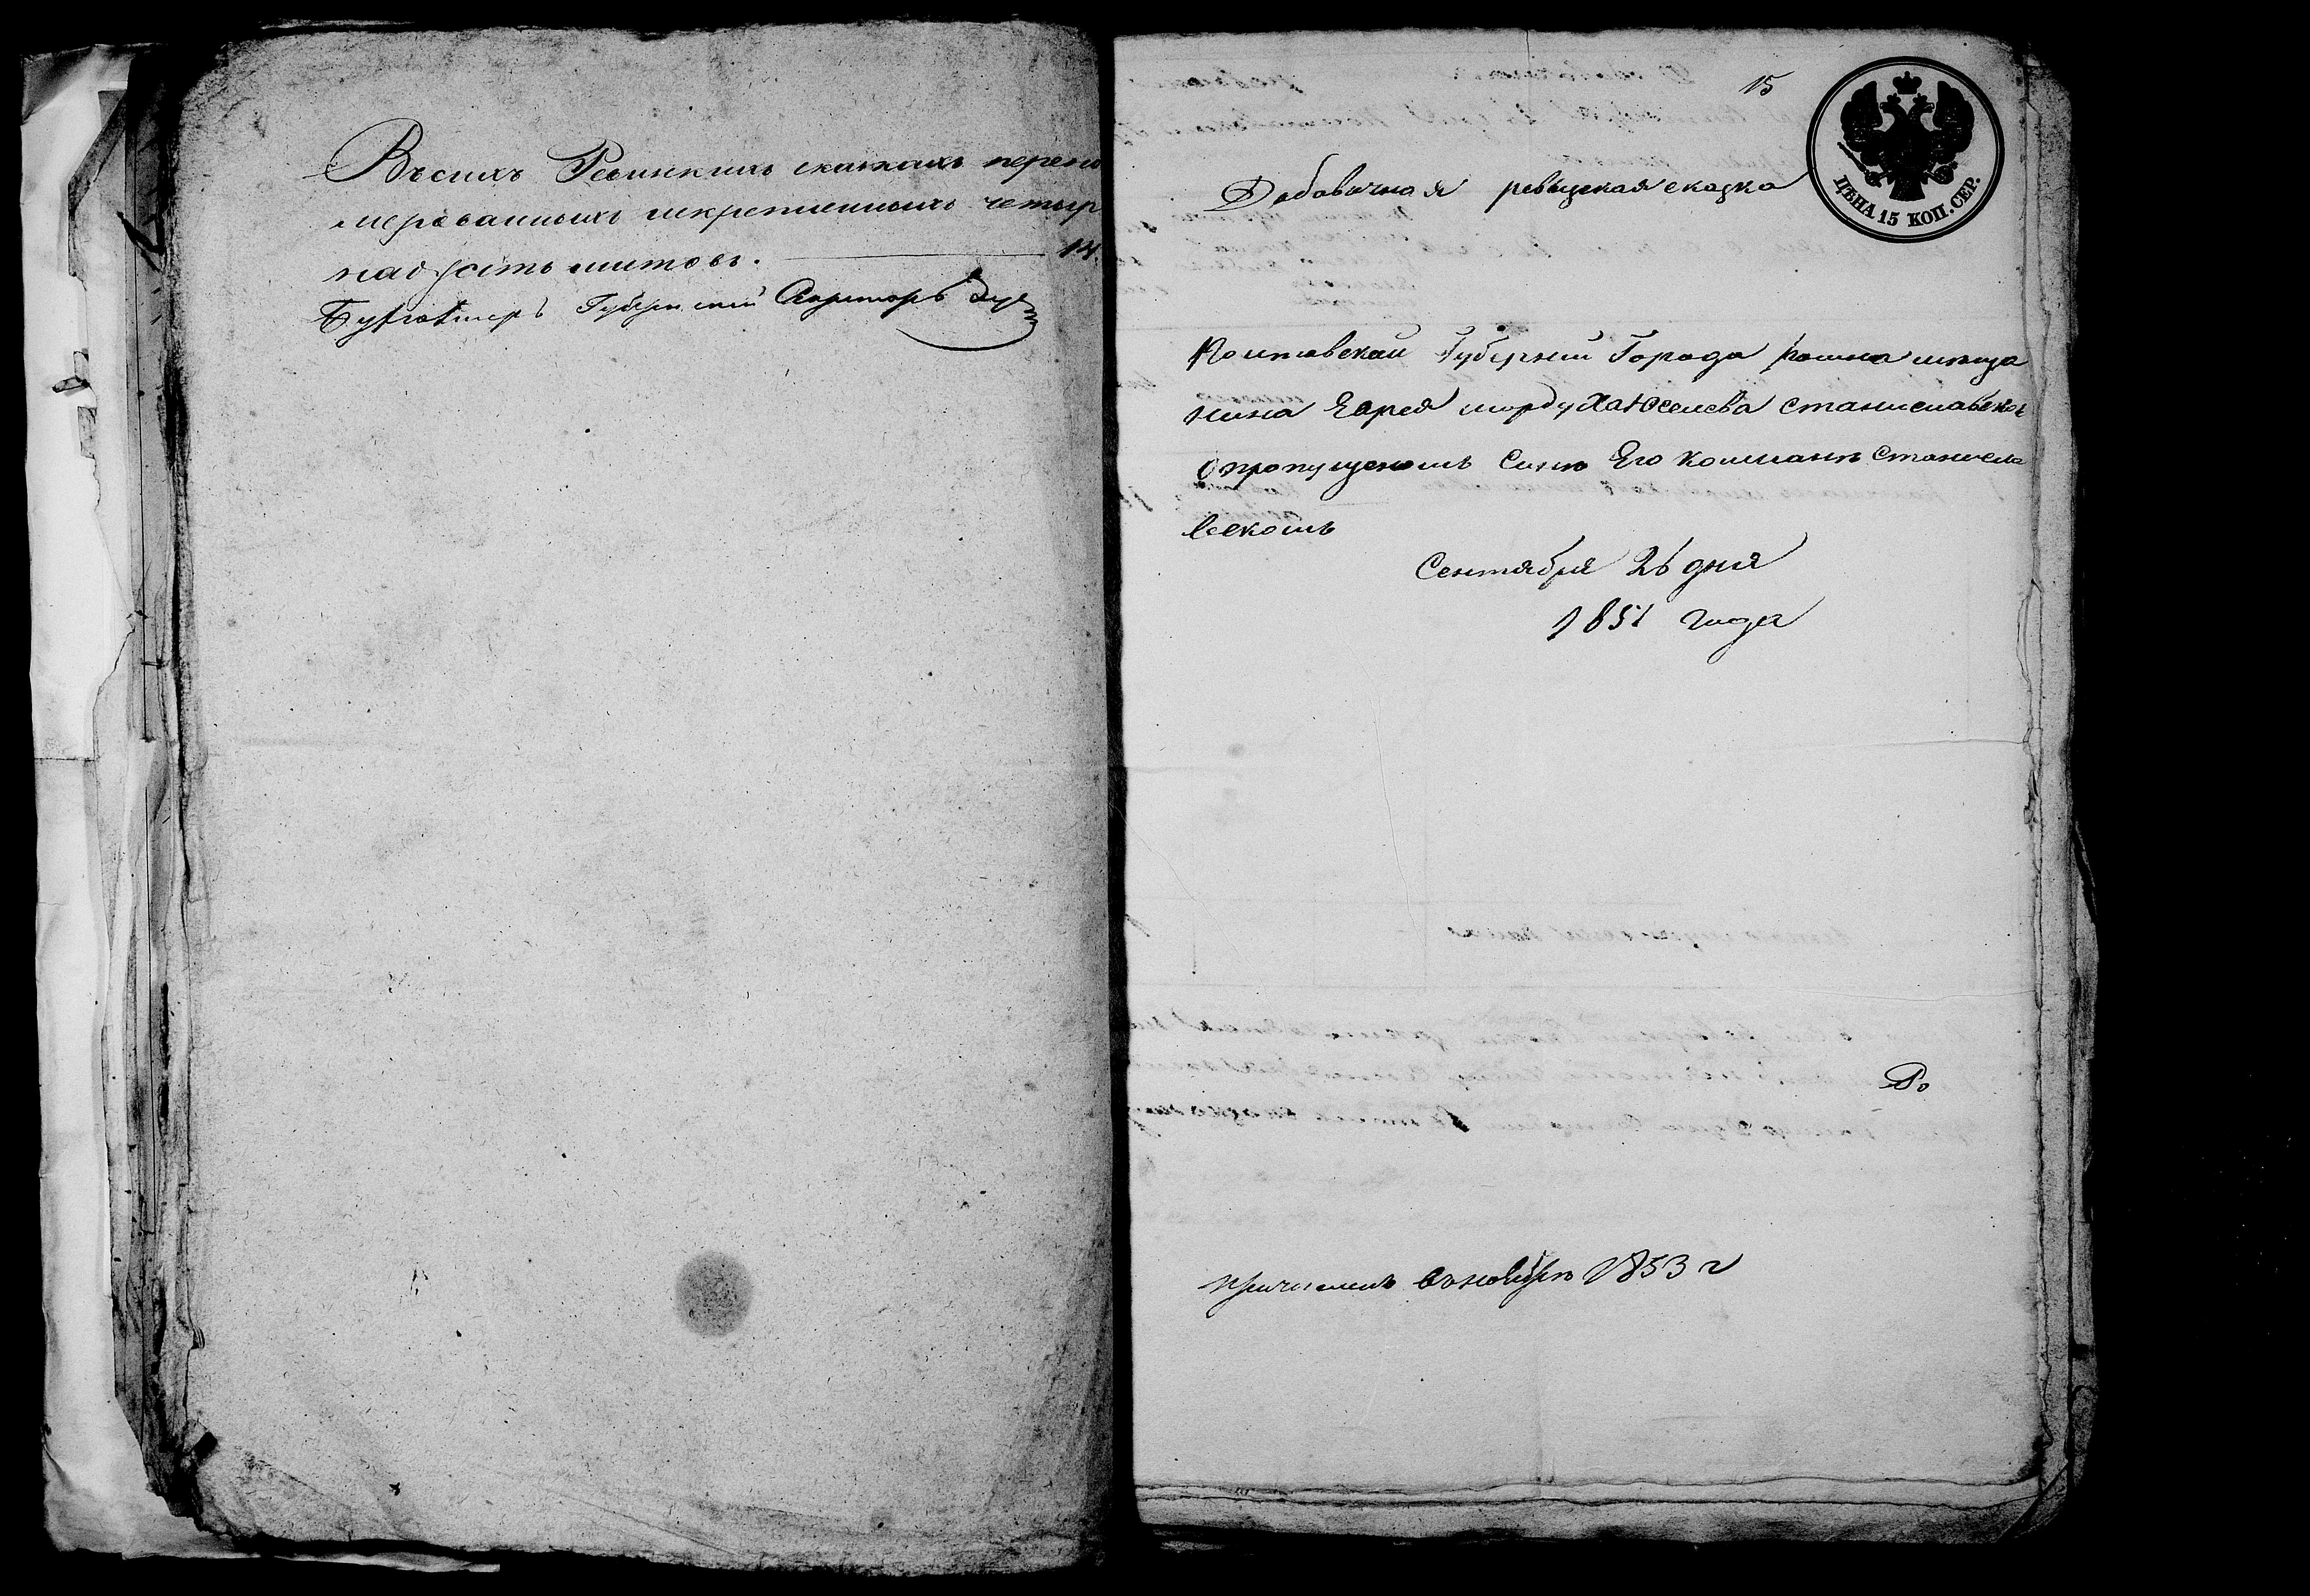 Въсихъ Ревискихъ сказкахъ перено
мерованныхъ искрепленныхъ четыр
надцать листовъ. 14.
Бухгалтеръ Губернский Секретарь
15
ЦѢНА 15 КОП. СЕР.
Добавочная ревыцская сказка
Полтавской Губернии Города Ромна мѣща
нина Еврея мордуха Юселева Станиславско
о пропущеномъ Сынѣ Его Калманѣ Станисла
вскомъ
Сентября 26 дня
1851 года
Ро
причисленъ въ ноябрѣ 1853 г